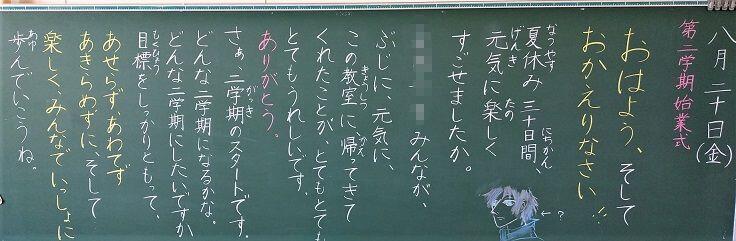 八月二十日(金)
第二学期始業式
おはよう、そして
おかえりなさい!!
夏休み三十日間、
元気に楽しく
すごせましたか。
みんなが、
ぶじに、元気に、
この教室に、帰ってきて
くれたことが、とてもとても
とてもうれしいです。
ありがとう。
さぁ、二学期のスタートです。
どんな二学期になるかな。
どんな二学期にしたいですか
目標をしっかりともって、
あせらず、あわてず
あきらめずに、そして
楽しく、みんなでいっしょに
歩んでいこうね。
なつやす
にちかん
げんき
たの
きょうしつ
かえ
がっき
もくひょう
たの
あゆ
←?